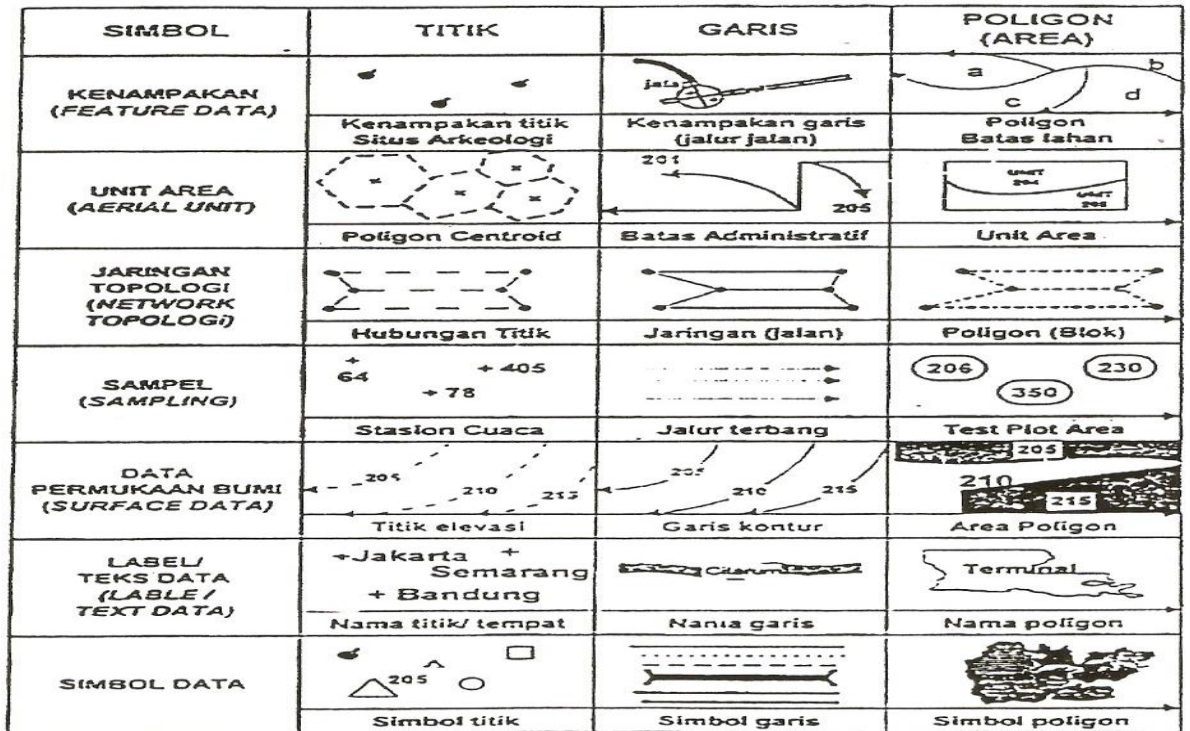 SIMBOL
TITIK
GARIS
POLIGON
(AREA)
KENAMPAKAN
(FEATURE DATA)
Kenampakan titik
Situs Arkeologi
jala
Kenampakan garis
(jalur jalan)
a
b
c
d
Poligon
Batas lahan
UNIT AREA
(AERIAL UNIT)
Poligon Centroid
201
205
Batas Administratif
UNIT
204
UNIT
Unit Area
JARINGAN
TOPOLOGI
(NETWORK
TOPOLOGi)
Hubungan Titik
Jaringan (jalan)
Poligon (Blok)
SAMPEL
(SAMPLING)
64
405
78
Stasion Cuaca
Jalur terbang
206
230
350
Test Plot Area
DATA
PERMUKAAN BUMI
(SURFACE DATA)
205
210
215
Titik elevasi
205
210
215
Garis kontur
205
210
215
Area Poligon
LABEL/
TEKS DATA
(LABLE /
TEXT DATA)
Jakarta
Semarang
Bandung
Nama titik/ tempat
Citarum
Nama garis
Terminal
Nama poligon
SIMBOL DATA
205
Simbol titik
Simbol garis
Simbol poligon